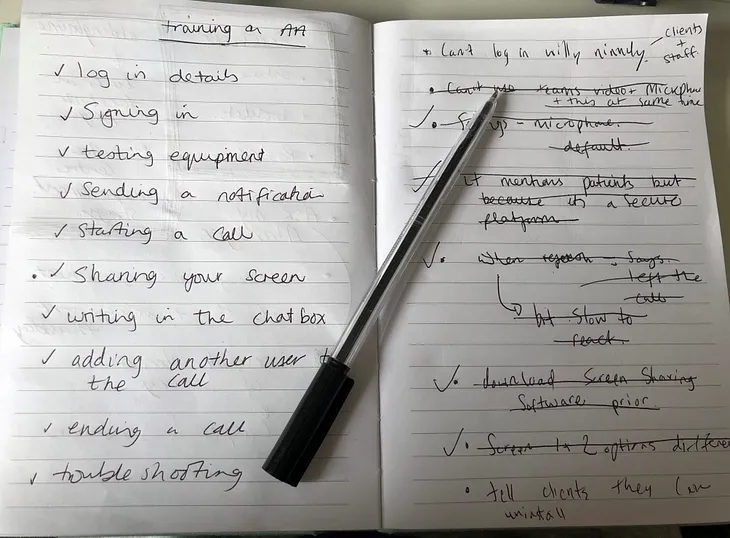 training on AA
✓ log in details
✓ Signing in
✓ testing equipment
✓ Sending a notification
✓ Starting a call
• ✓ Sharing your screen
✓ writing in the chatbox
✓ adding another user
the call
✓ ending a call
✓ trouble shooting
• Can't log in willy ninndy.
clients
+
staff
• Can't use teams video + Mickphone
+ this at same time
✓ • microphone
default.
✓ it mentions patients but
because its a secure
platform
✓ • when says
left the
call
but slow to
react.
✓ • download Screen Sharing
Software prior.
✓ • Screen 2 options
• tell clients they can